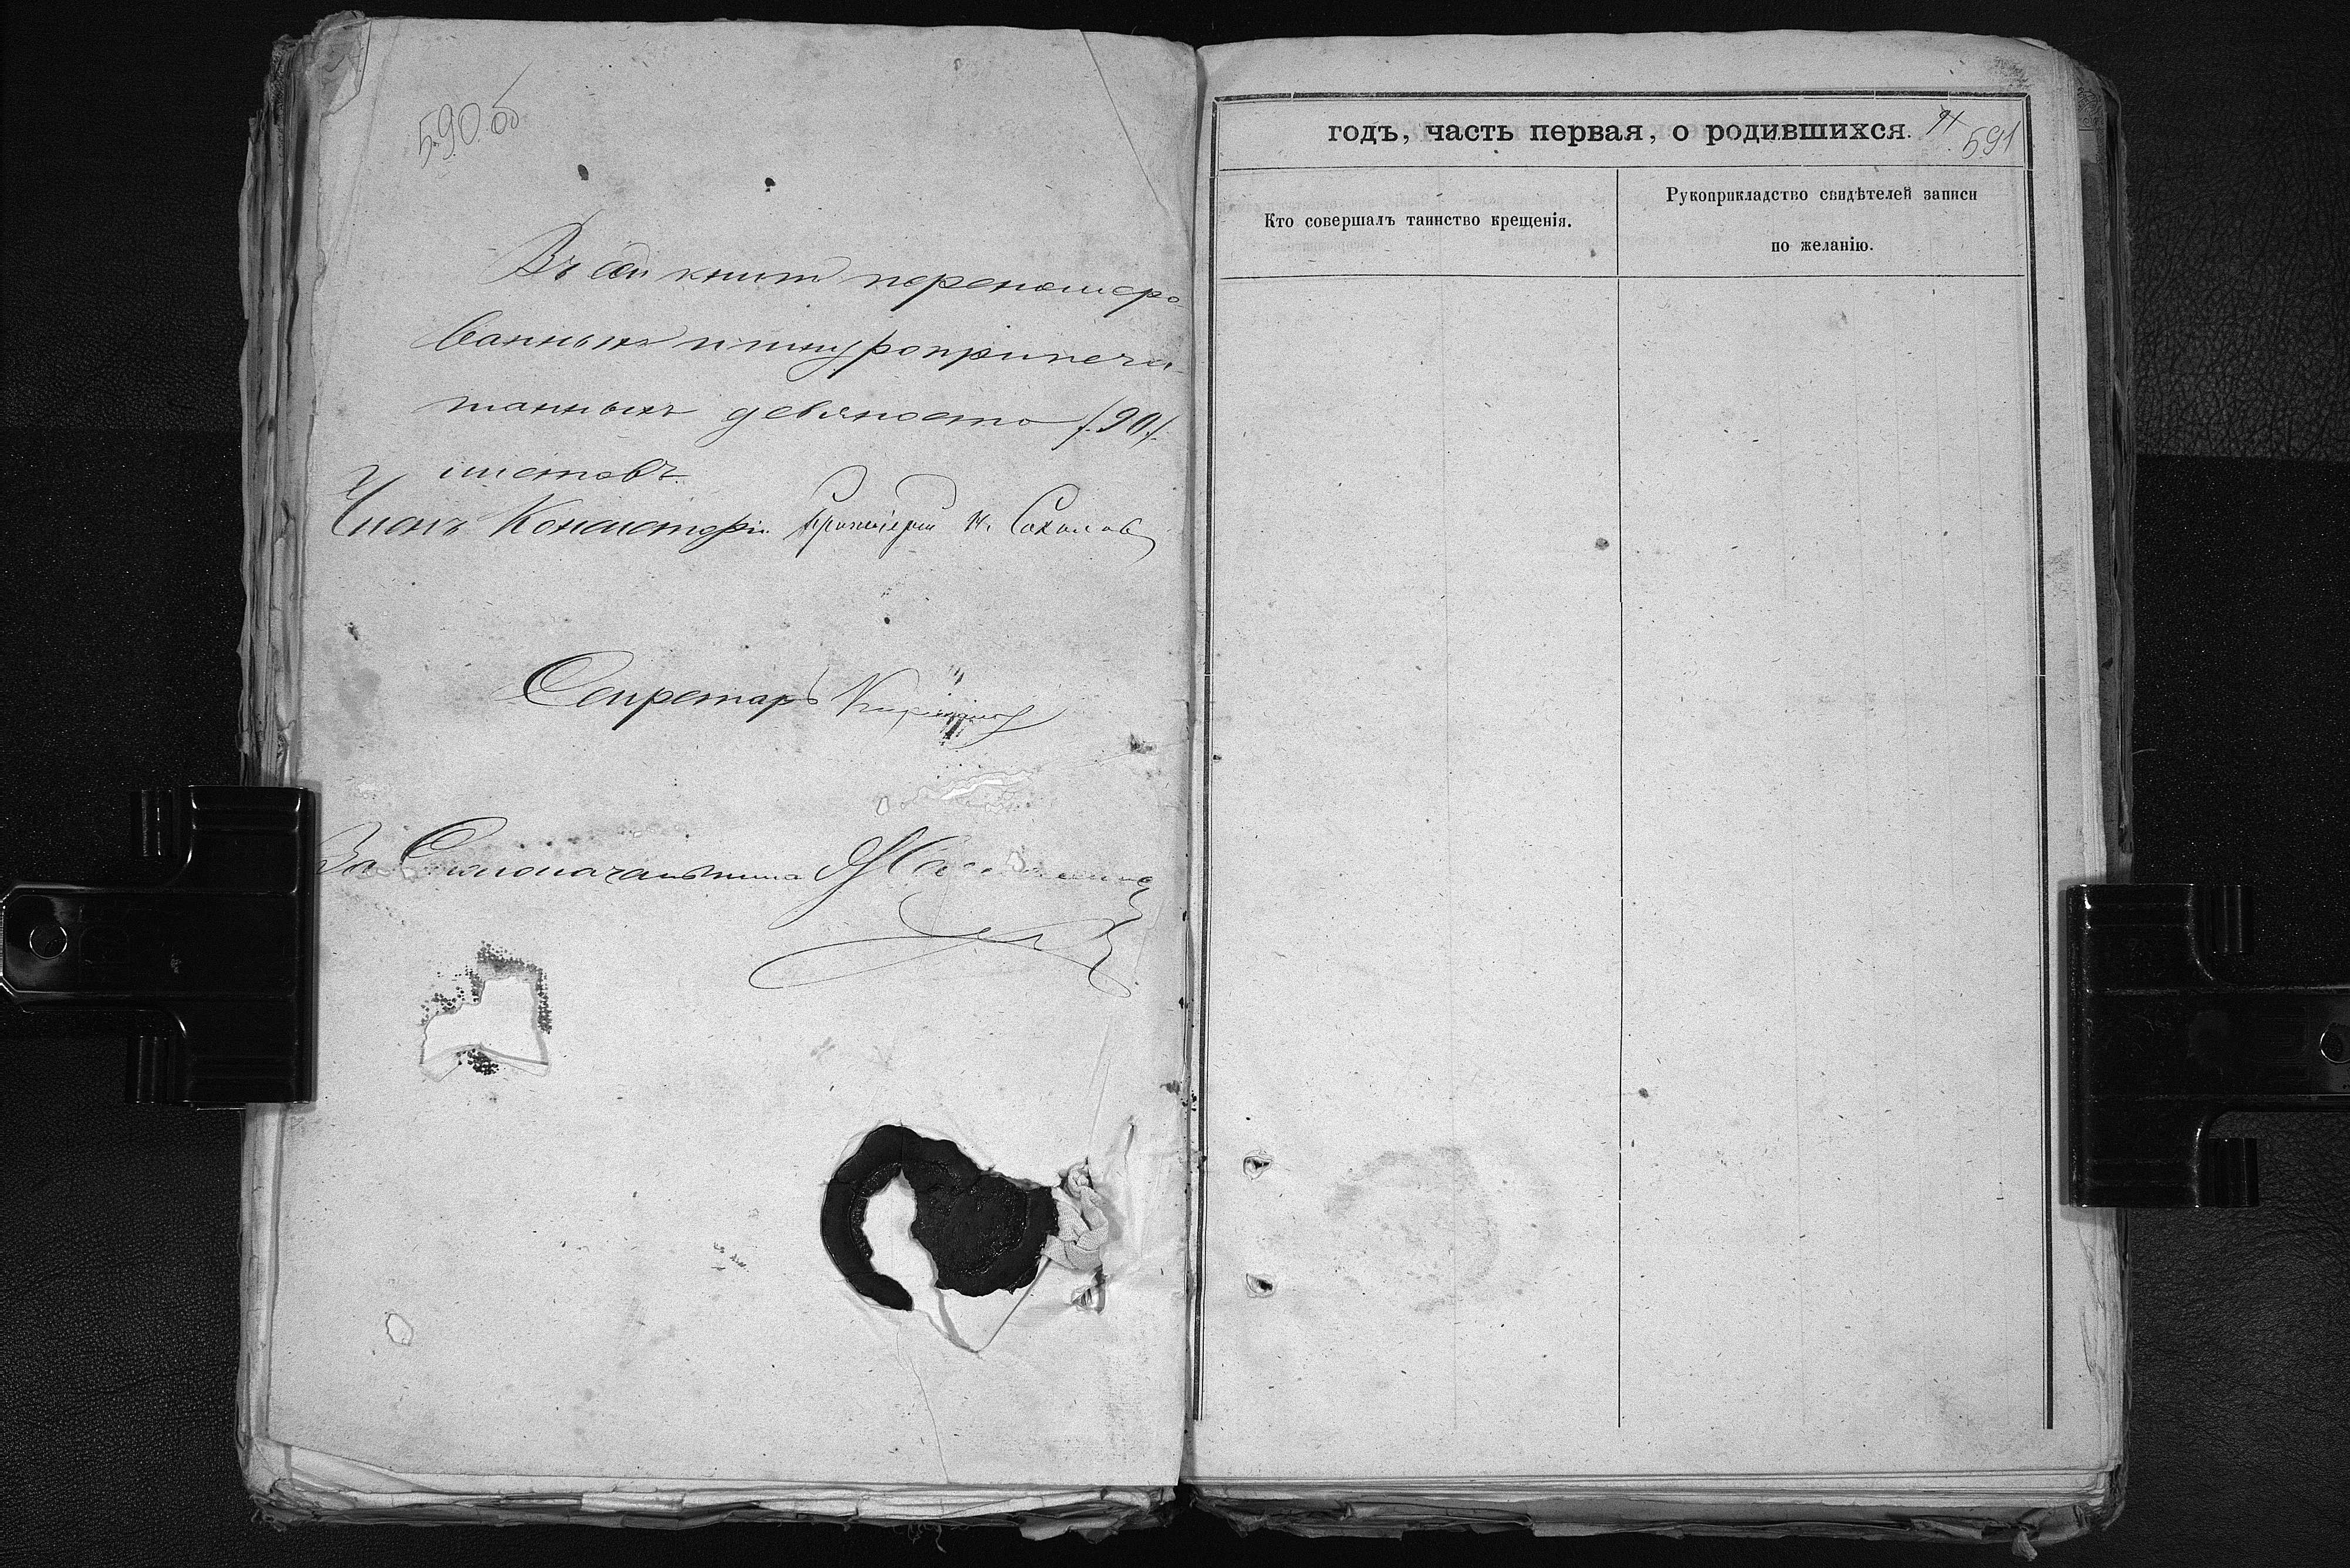 590 об
Въ сей книгѣ перенумеро-
ванныхъ и шнуроприпеча-
танныхъ девяносто /.90./.
листовъ.
Членъ Консисторіи Протоіерей Н. Соколовъ
Секретарь
За Столоначальника
годъ, часть первая, о родившихся.
591
Кто совершалъ таинство крещенія.
Рукоприкладство свидѣтелей записи
по желанію.